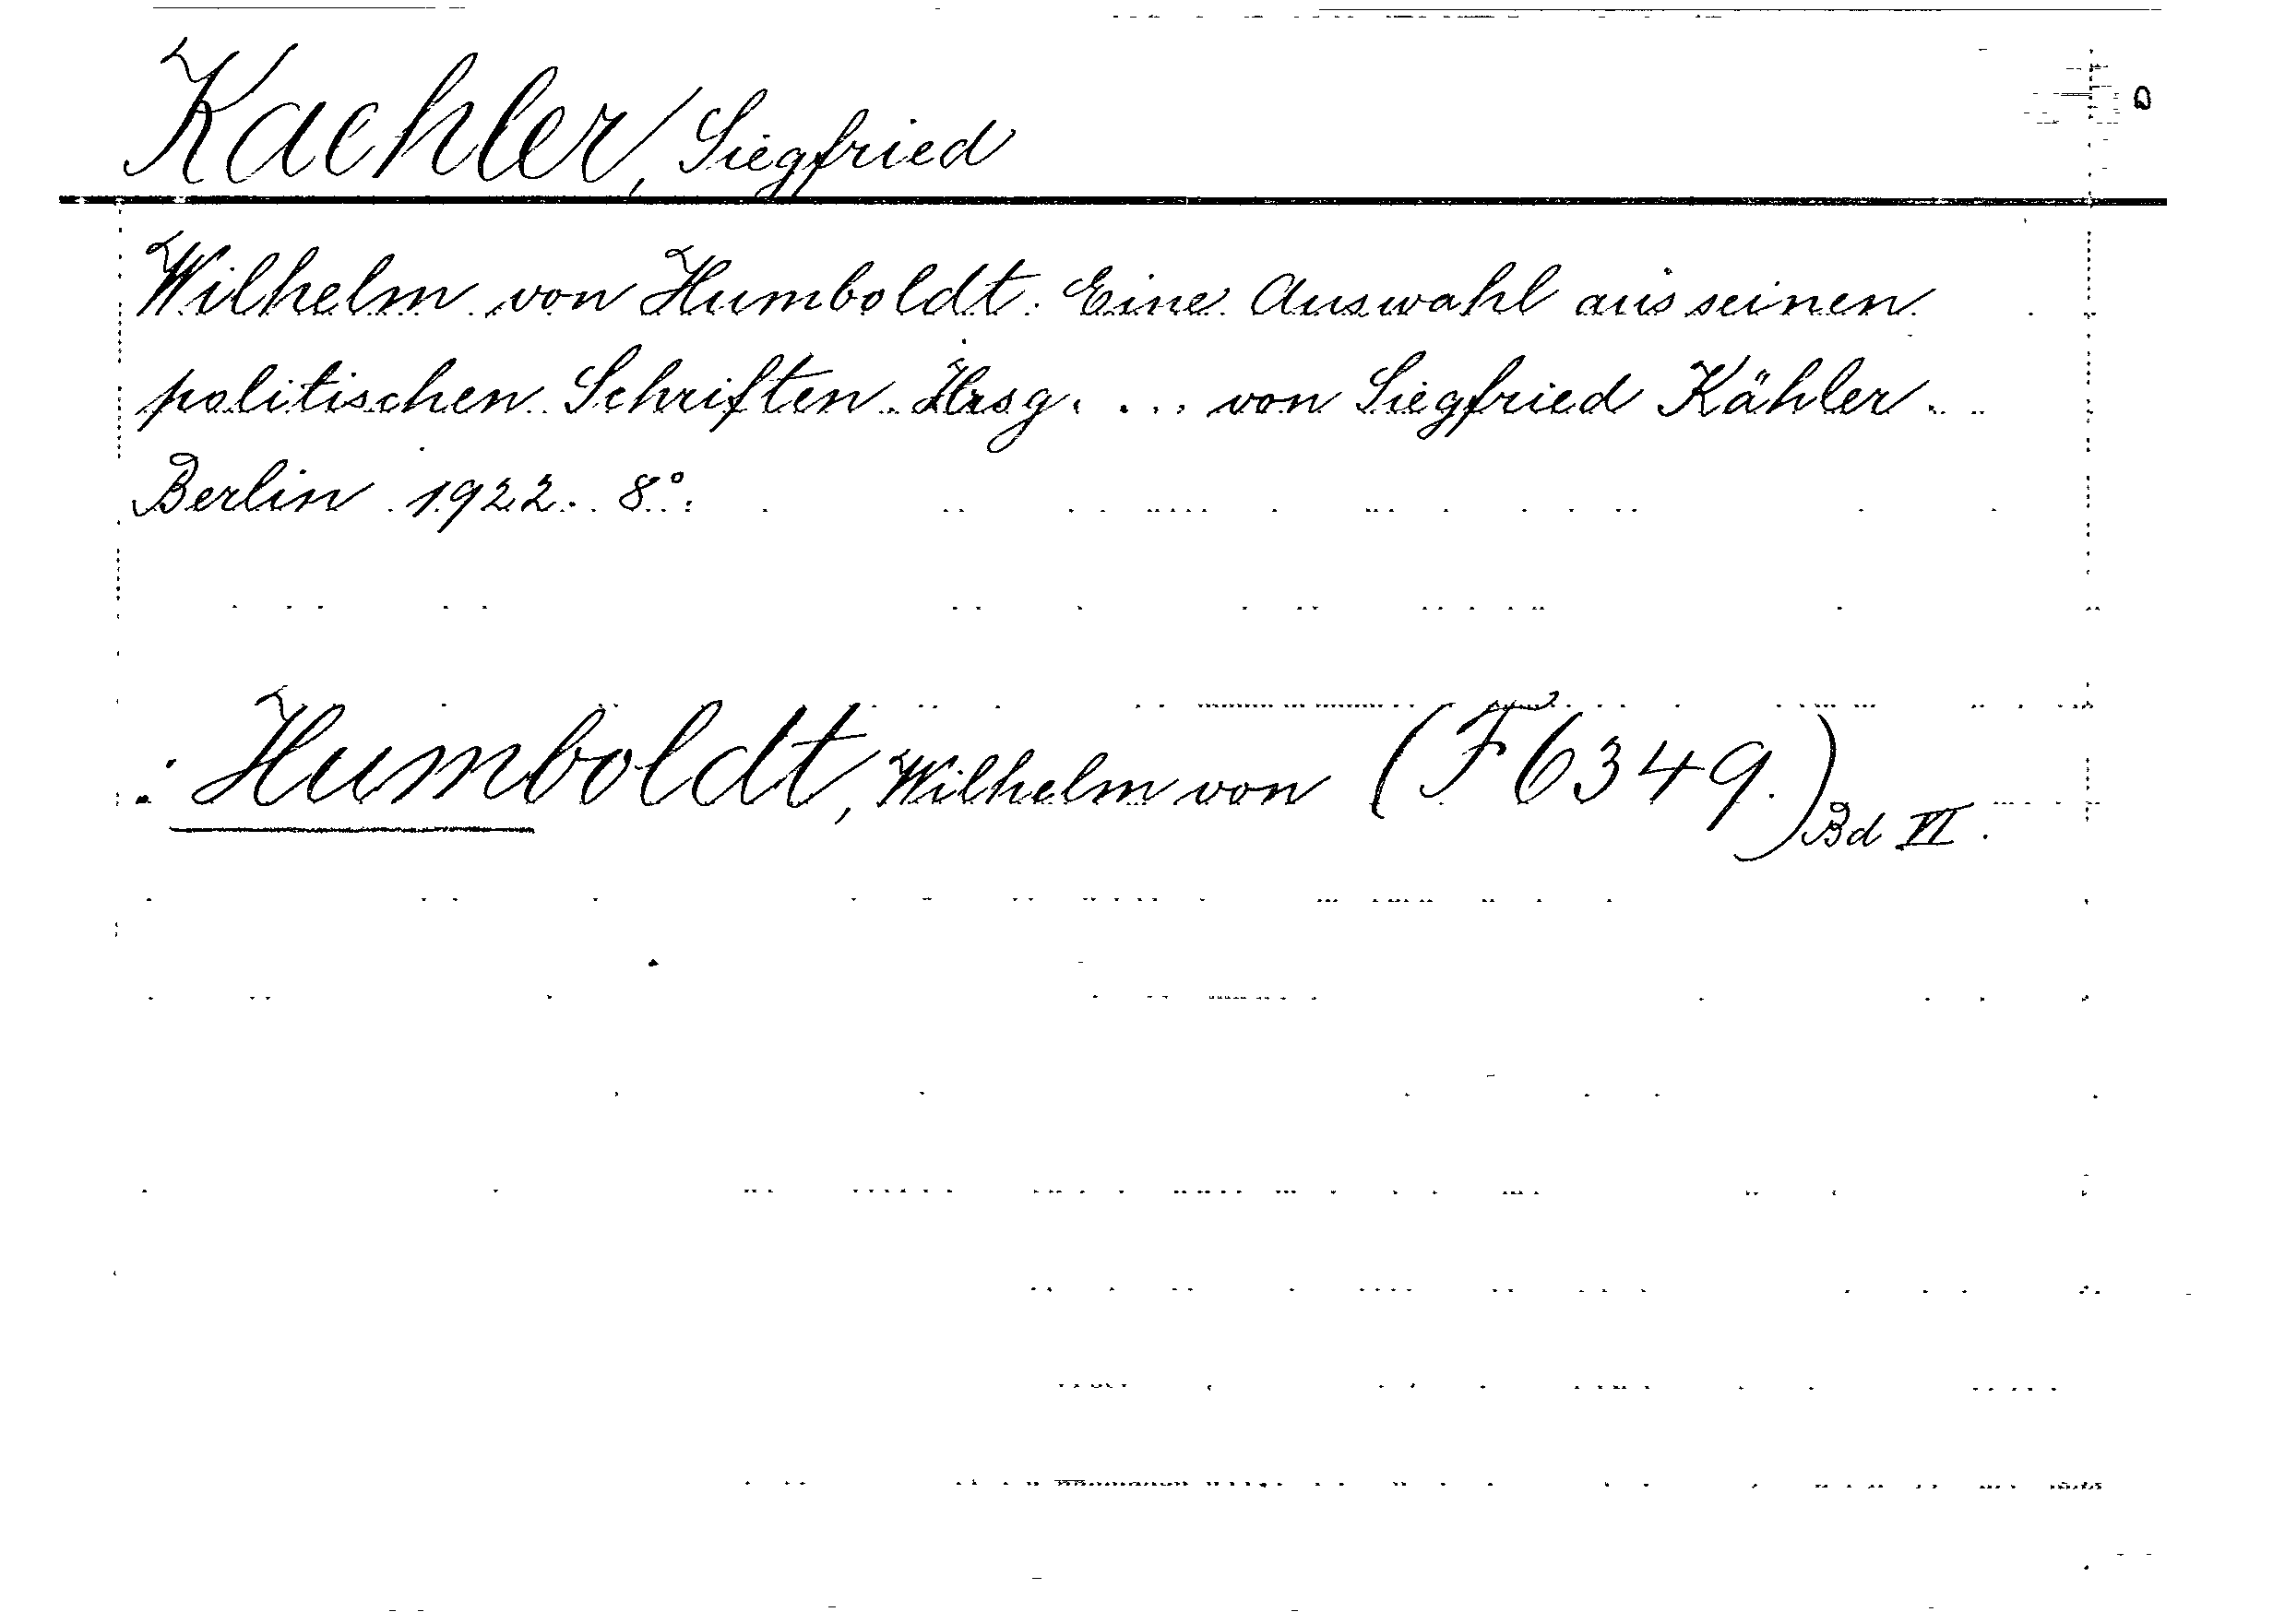 Kaehler, Siegfried
Wilhelm von Humboldt. Eine Auswahl aus seinen
politischen Schriften. Hrsg. ... von Siegfried Kähler.
Berlin 1922. 8°.
: Humboldt, Wilhelm von (F 6349.) Bd VI.